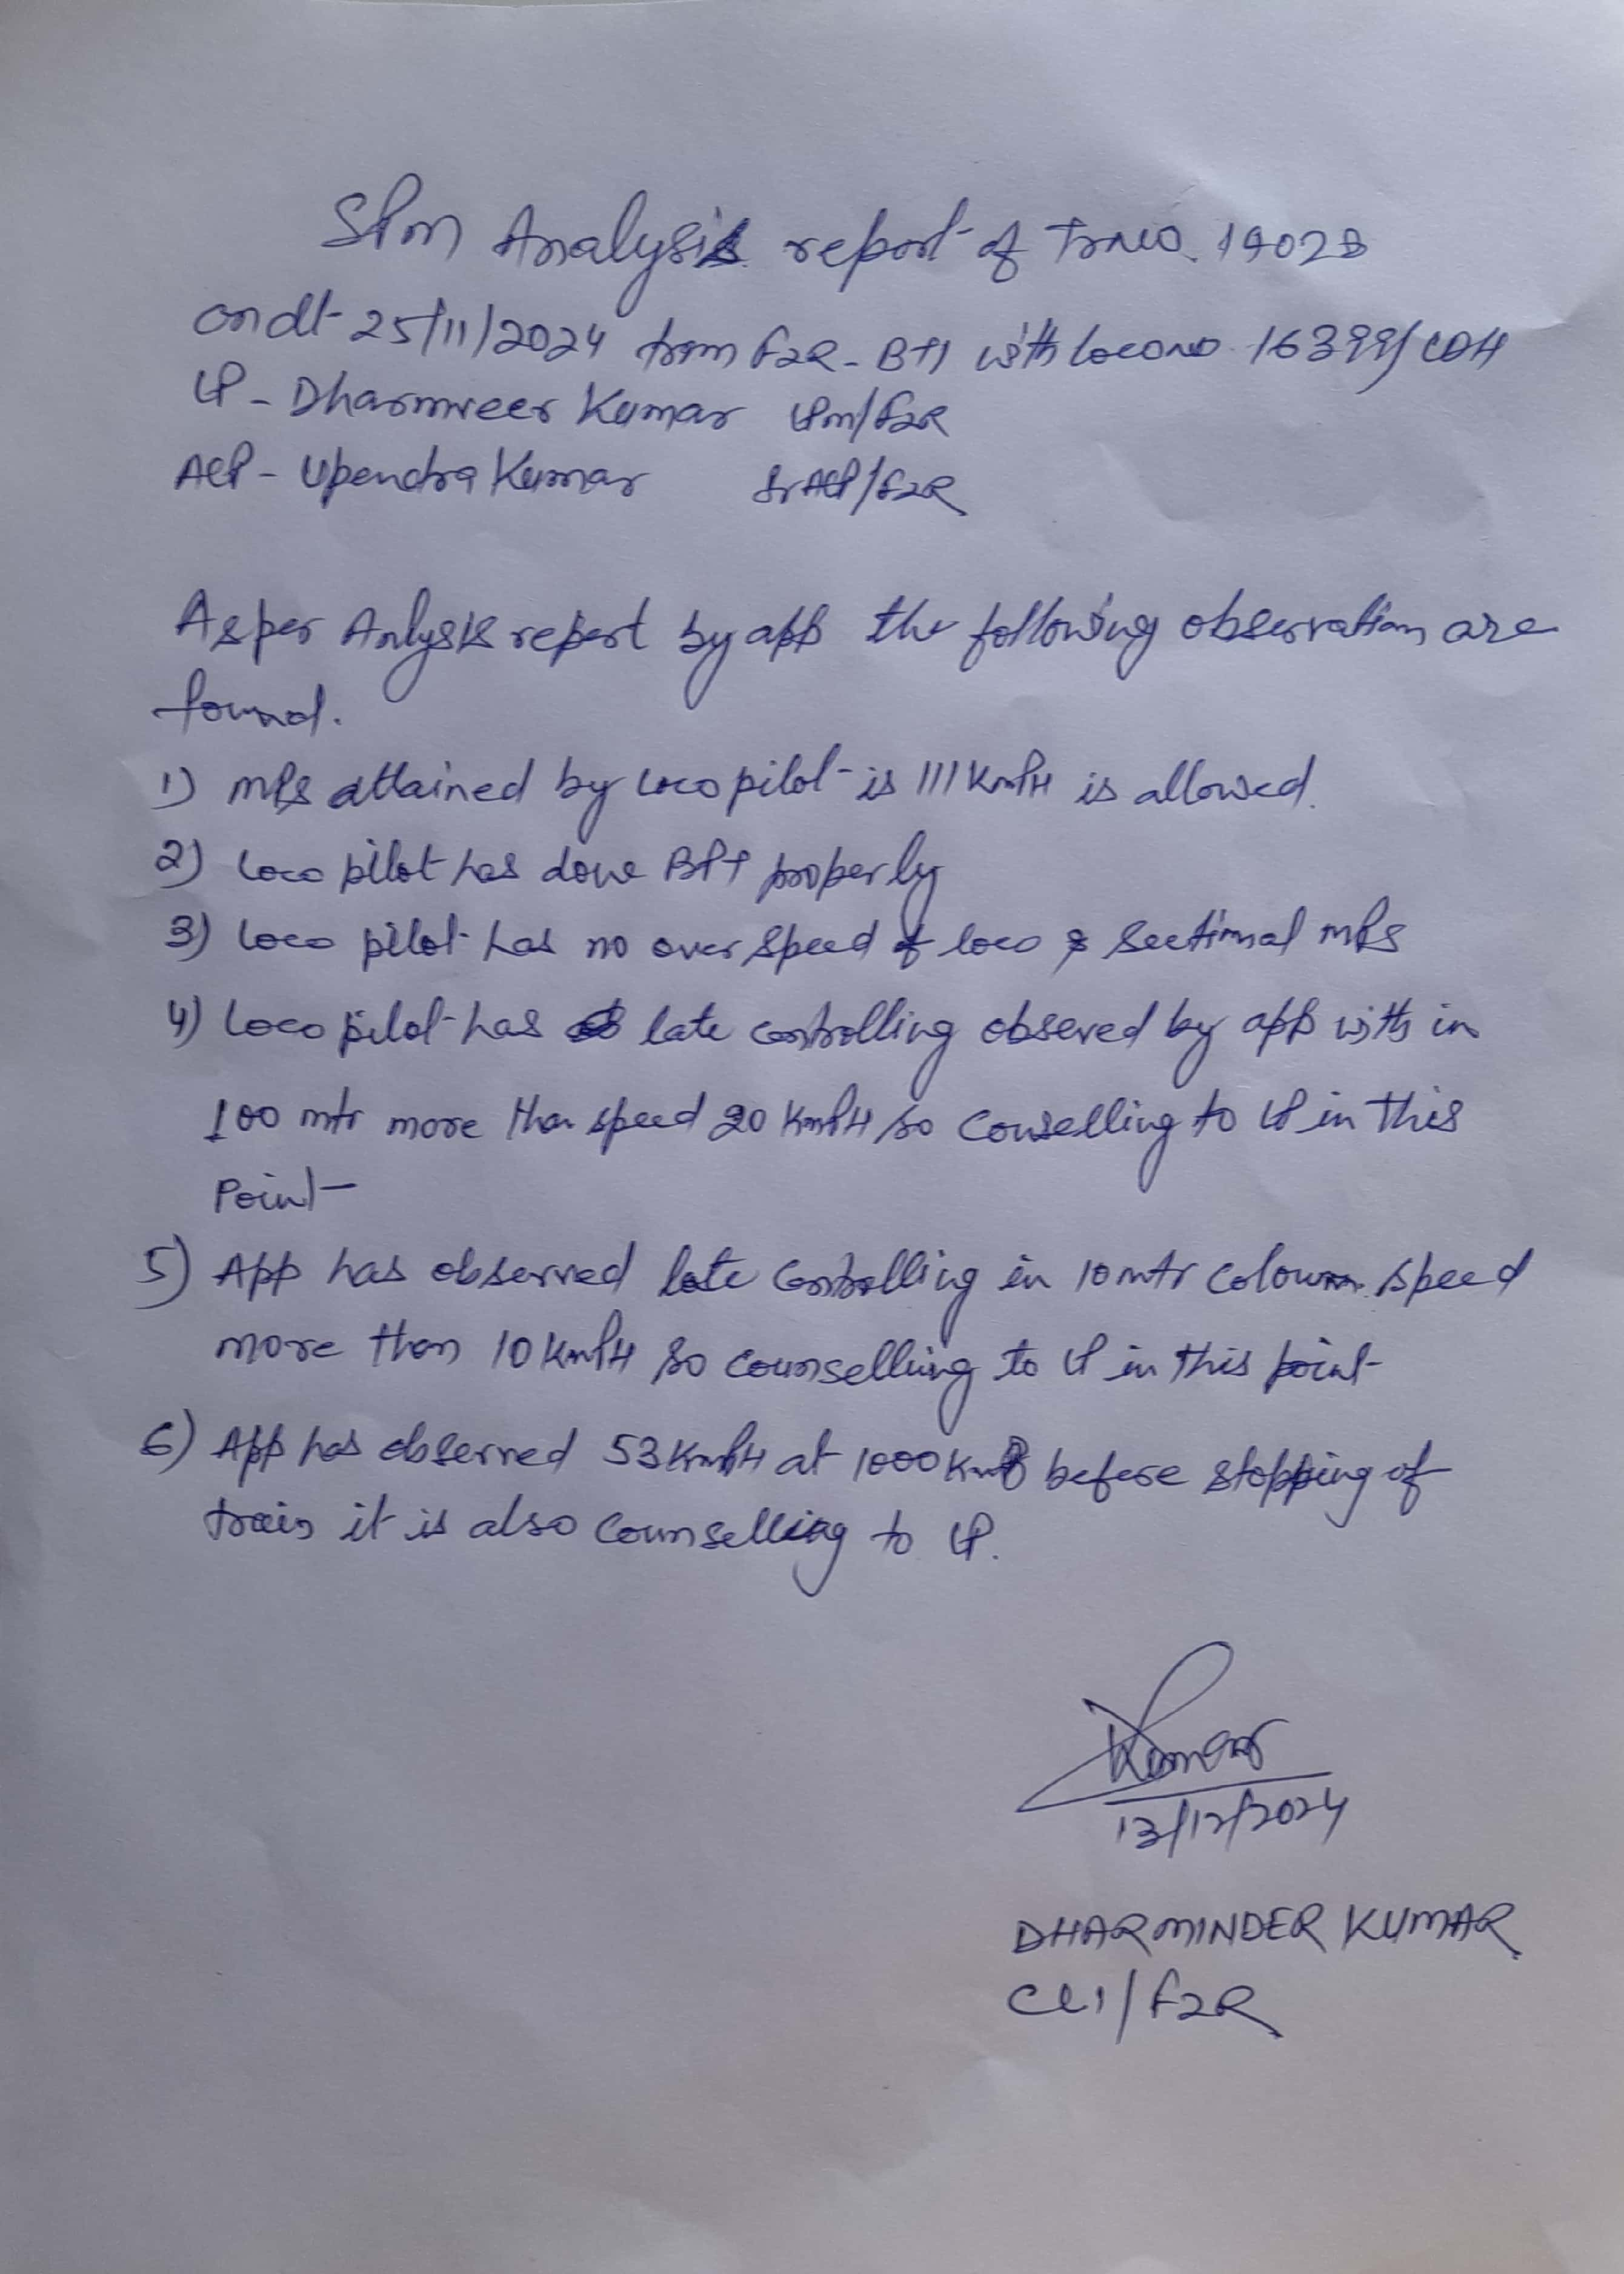 SPM Analysis report of TrNo. 14028
on dt 25/11/2024 from FZR - BTI with loco no 16399/LDH
LP - Dharmveer Kumar LPM/FZR
ALP - Upendra Kumar Sr ALP/FZR
As per Anlysis report by app the following observation are
found.
1) MPS attained by Loco pilot is 111 KmPH is allowed.
2) Loco pilot has done BPT properly
3) Loco pilot has no over speed of loco & Sectional MPS
4) Loco pilot has late controlling obseved by app with in
100 mtr more than speed 20 KmPH so Conselling to LP in this
Point
5) App has observed late Controlling in 10 mtr colown speed
more than 10 KmPH so counselling to LP in this point
6) App has observed 53 KmPH at 1000 before stopping of
train it is also Counselling to LP.
Kumar
13/12/2024
DHARMINDER KUMAR
CLI/FZR